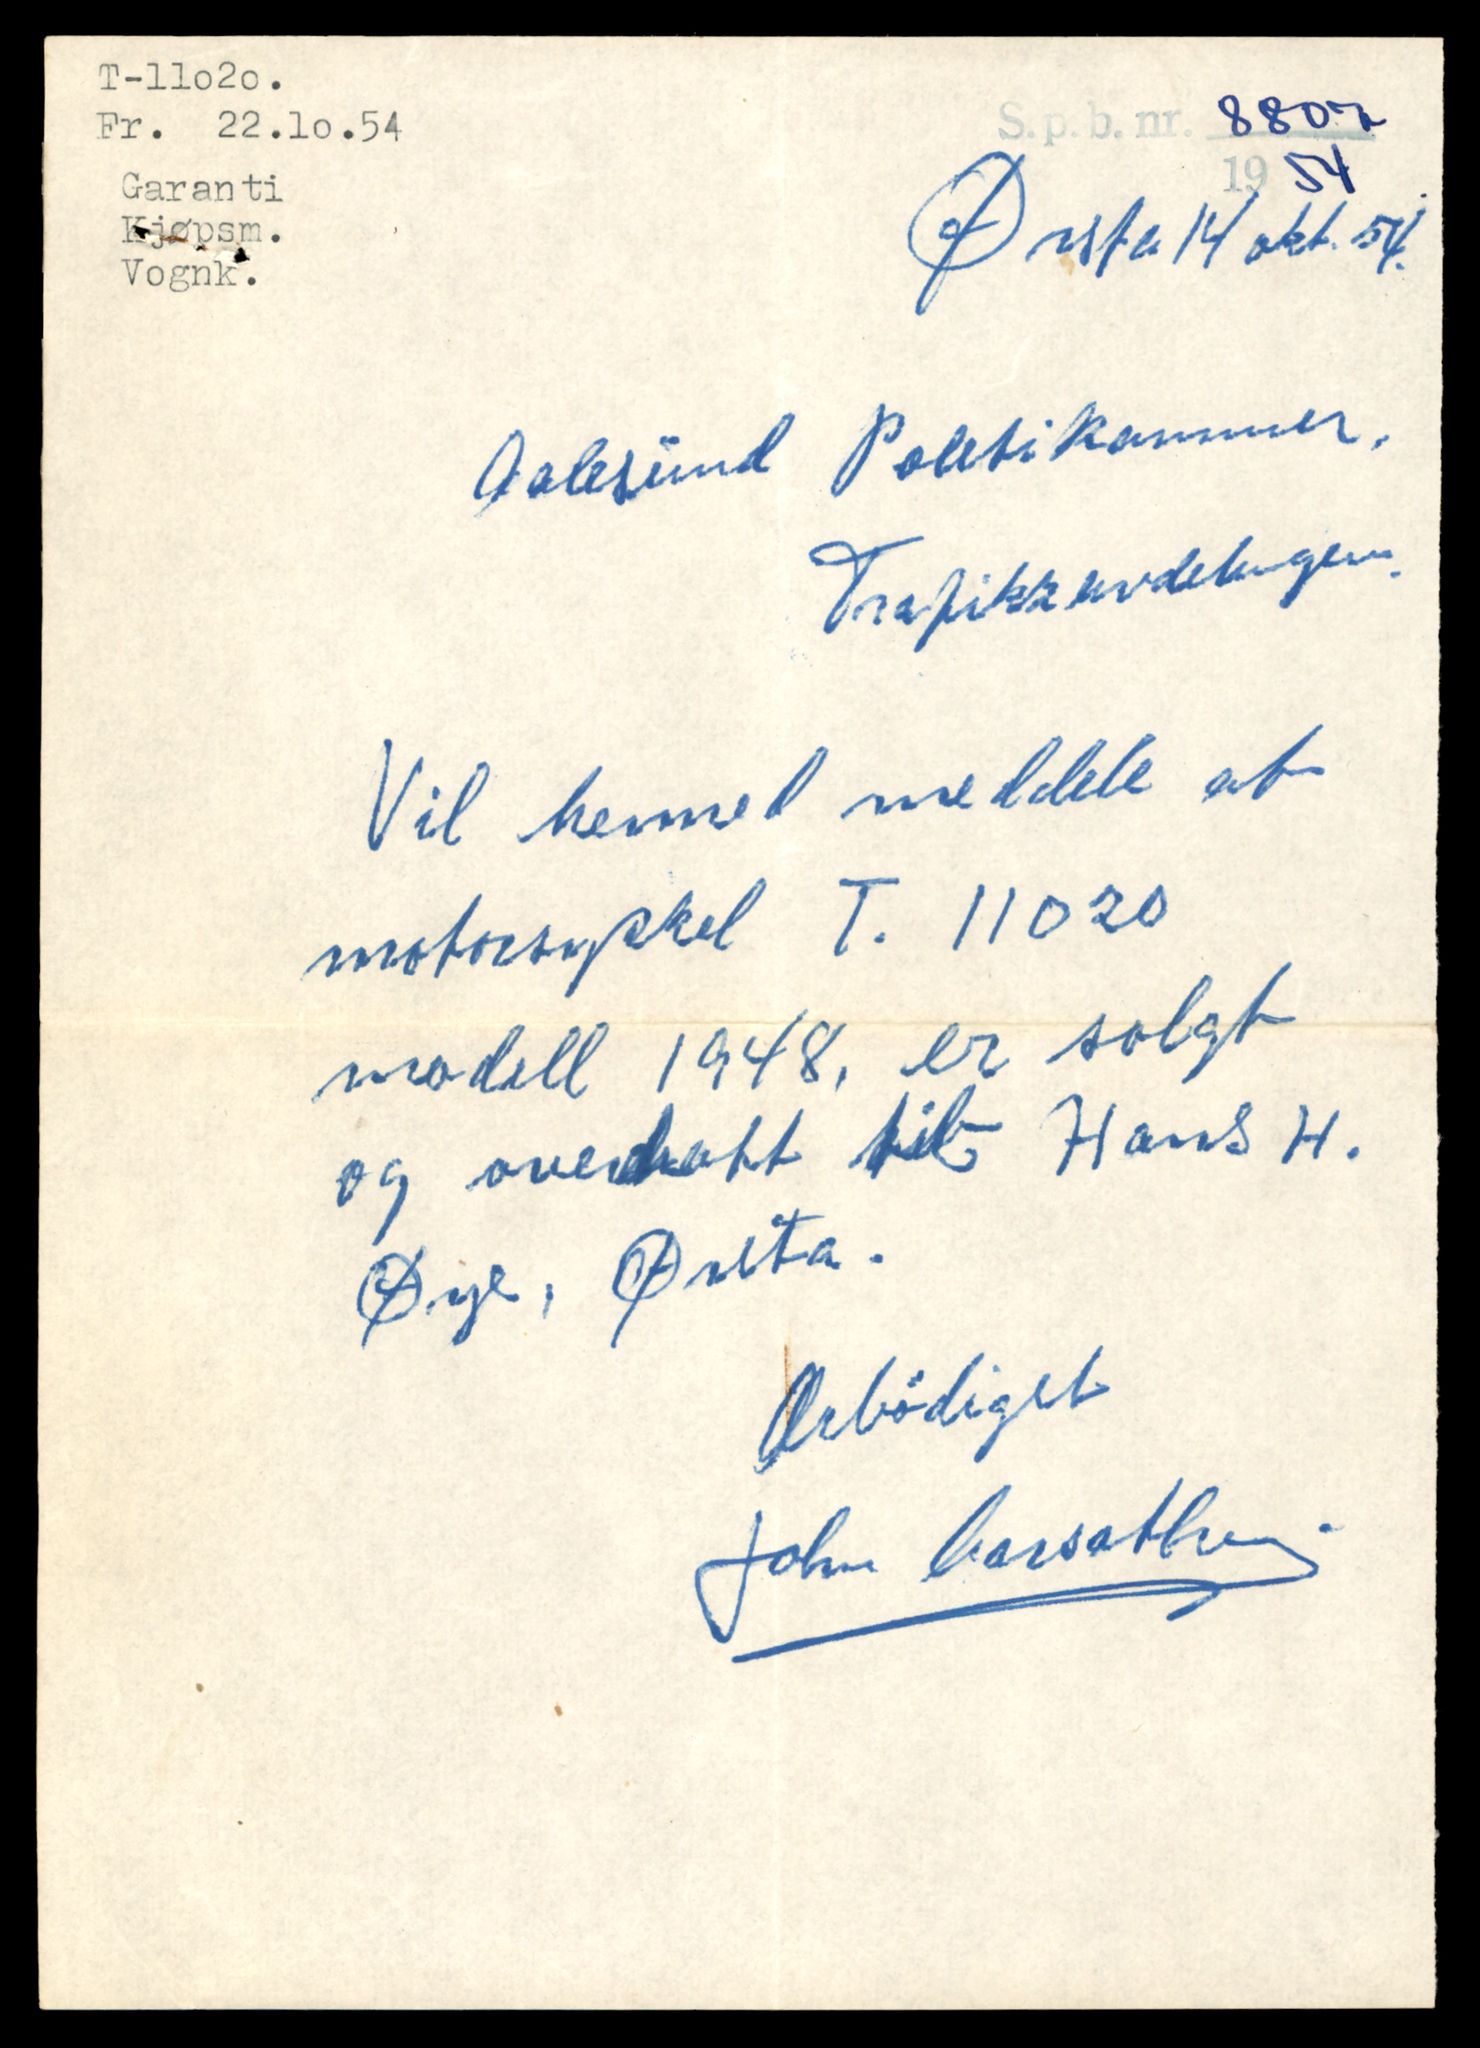 T-11o2o.
Fr. 22.1o.54
Garanti
Kjøpsm.
Vognk.
S.p.b. nr. 8802
19 54
Ørsta 14 okt. 54.
Aalesund Politikammer.
Trafikkavdelingen.
Vil hermed meddele at
motorsykkel T. 11020
modell 1948, er solgt
og overdratt til Hans H.
Øye, Ørsta.
Ærbödigst
John